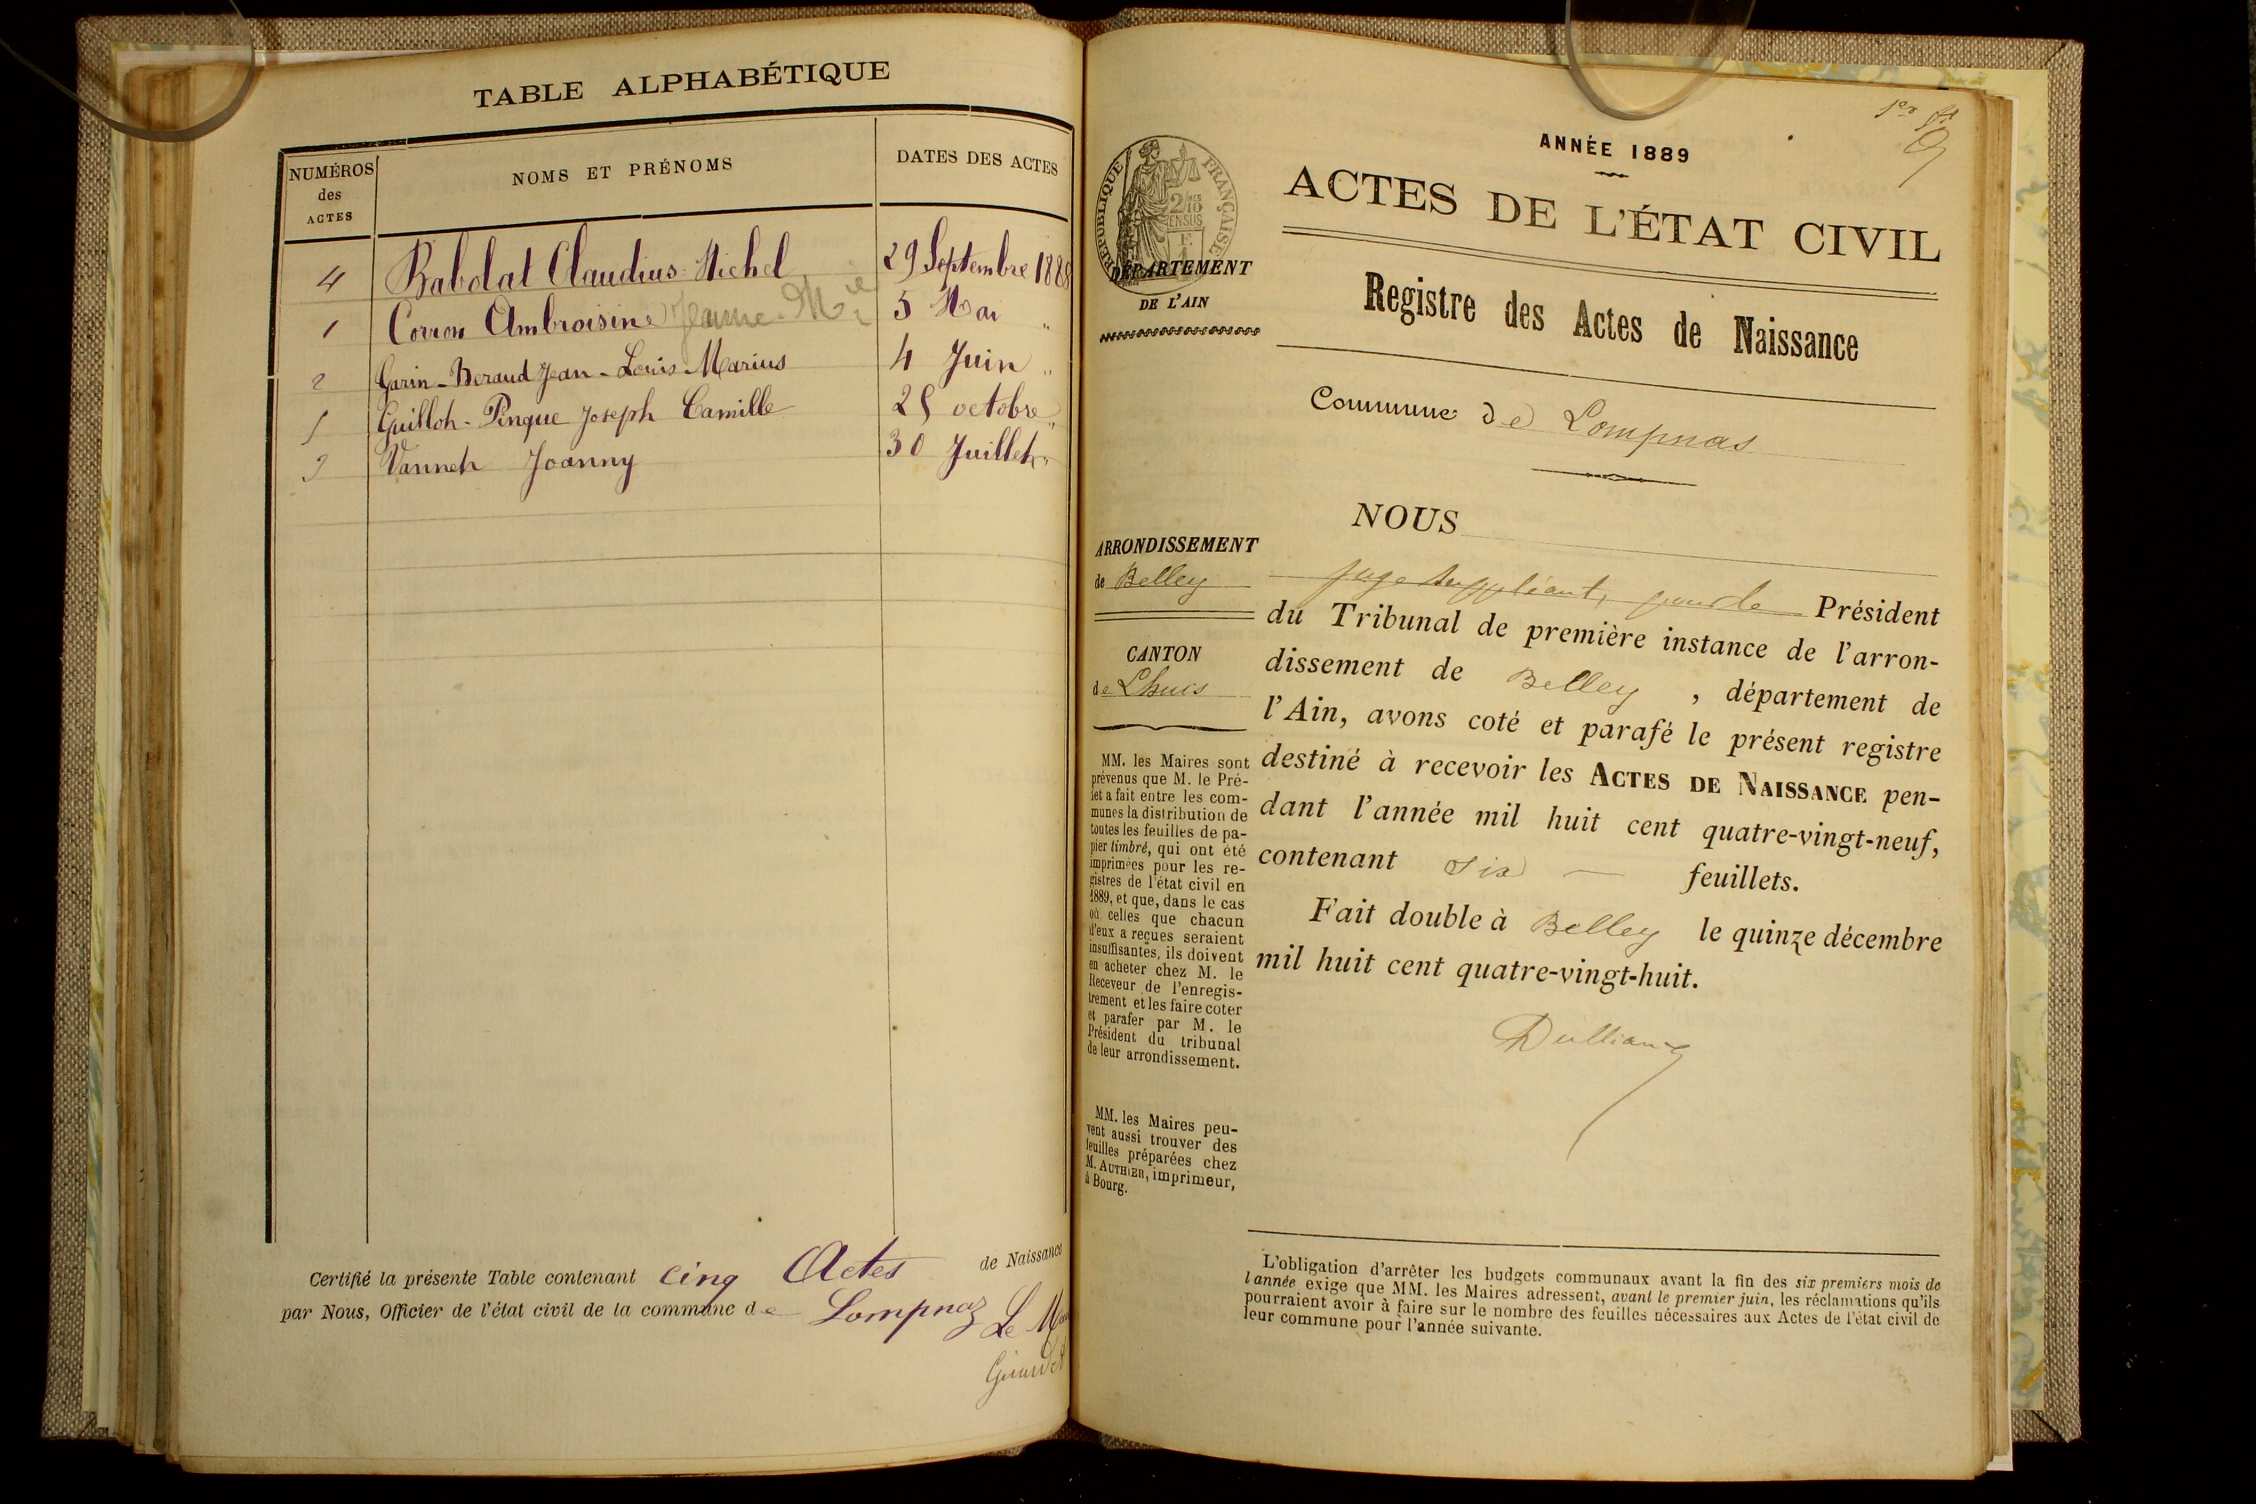 TABLE ALPHABÉTIQUE
NUMÉROS
des
ACTES
NOMS ET PRÉNOMS
DATES DES ACTES
4 Babolat Claudius Michel 29 Septembre 1888
1 Corron Ambroisine Jeanne-Mie 5 Mai "
2 Garin-Beraud Jean-Louis-Marius 4 Juin "
5 Guillot-Pingue Joseph Camille 25 octobre "
3 Vannet Joanny 30 Juillet "
Certifié la présente Table contenant cinq Actes de Naissance
par Nous, Officier de l'état civil de la commune de Lompnaz
Le
Girardet
1er ft
ANNÉE 1889
ACTES DE L'ÉTAT CIVIL
RÉPUBLIQUE FRANÇAISE
2/10
EN SUS
DÉPARTEMENT
DE L'AIN
Registre des Actes de Naissance
Commune de Lompnas
NOUS
ARRONDISSEMENT
de Belley
CANTON
de Lhuis
juge suppléant, pour le Président
du Tribunal de première instance de l'arron-
dissement de Belley, département de
l'Ain, avons coté et parafé le présent registre
destiné à recevoir les ACTES DE NAISSANCE pen-
dant l'année mil huit cent quatre-vingt-neuf,
contenant six — feuillets.
Fait double à Belley le quinze décembre
mil huit cent quatre-vingt-huit.
Dulliand
MM. les Maires sont
prévenus que M. le Pré-
fet a fait entre les com-
munes la distribution de
toutes les feuilles de pa-
pier timbré, qui ont été
imprimées pour les re-
gistres de l'état civil en
1889, et que, dans le cas
où celles que chacun
d'eux a reçues seraient
insuffisantes, ils doivent
en acheter chez M. le
Receveur de l'enregis-
trement et les faire coter
et parafer par M. le
Président du tribunal
de leur arrondissement.
MM. les Maires peu-
vent aussi trouver des
feuilles préparées chez
M. AUTHIER, imprimeur,
à Bourg.
L'obligation d'arrêter les budgets communaux avant la fin des six premiers mois de
l'année exige que MM. les Maires adressent, avant le premier juin, les réclamations qu'ils
pourraient avoir à faire sur le nombre des feuilles nécessaires aux Actes de l'état civil de
leur commune pour l'année suivante.